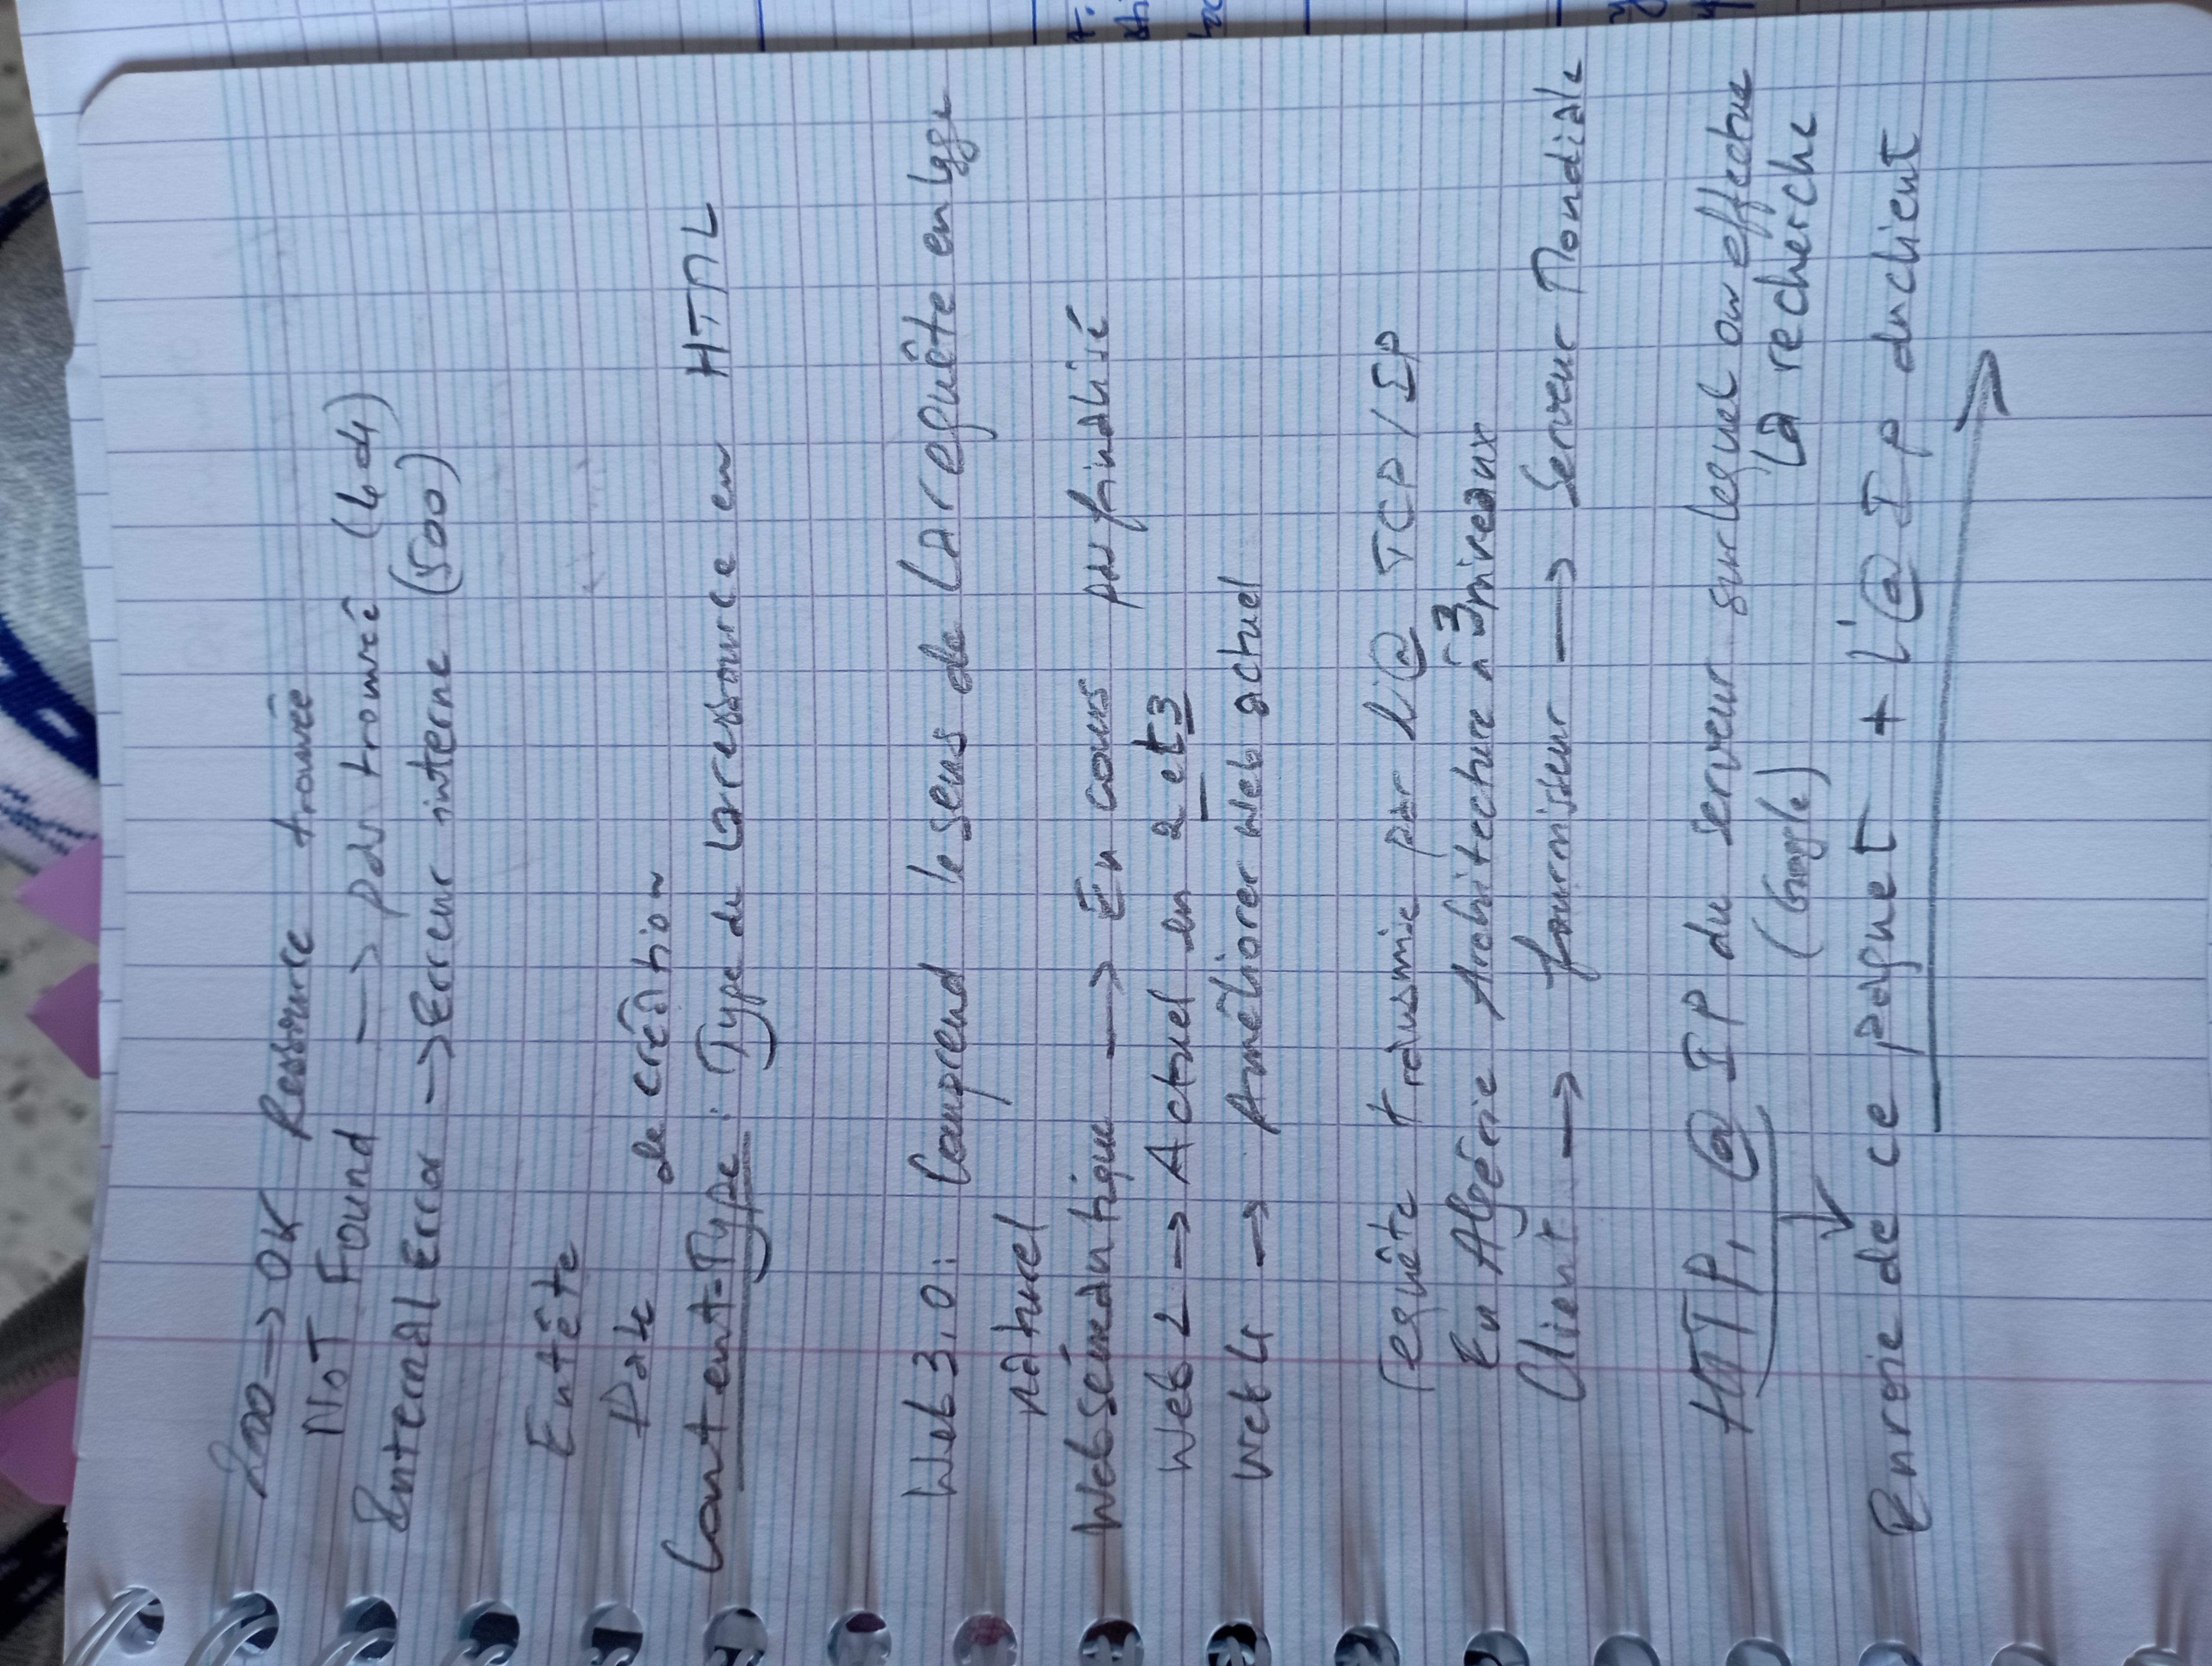 200 → OK Ressource trouvée
NOT Found → pas trouvé (404)
Internal Error → Erreur interne (500)
Entête
Date de création
Content-Type : Type de la ressource en HTML
Web 3.0 : Comprend le sens de la requête en lgge
naturel
Web sémantique → En cours pas finalisé
Web 2 → Actuel en 2 et 3
Web 4 → Améliorer web actuel
requête transmie par l'@ TCP/IP
En Algérie Architecture à 3 niveaux
Client → fournisseur → Serveur Mondiale
HTTP, @ IP du serveur sur lequel on effectue
(Google) la recherche
Envoie de ce paquet + l'@ IP du client